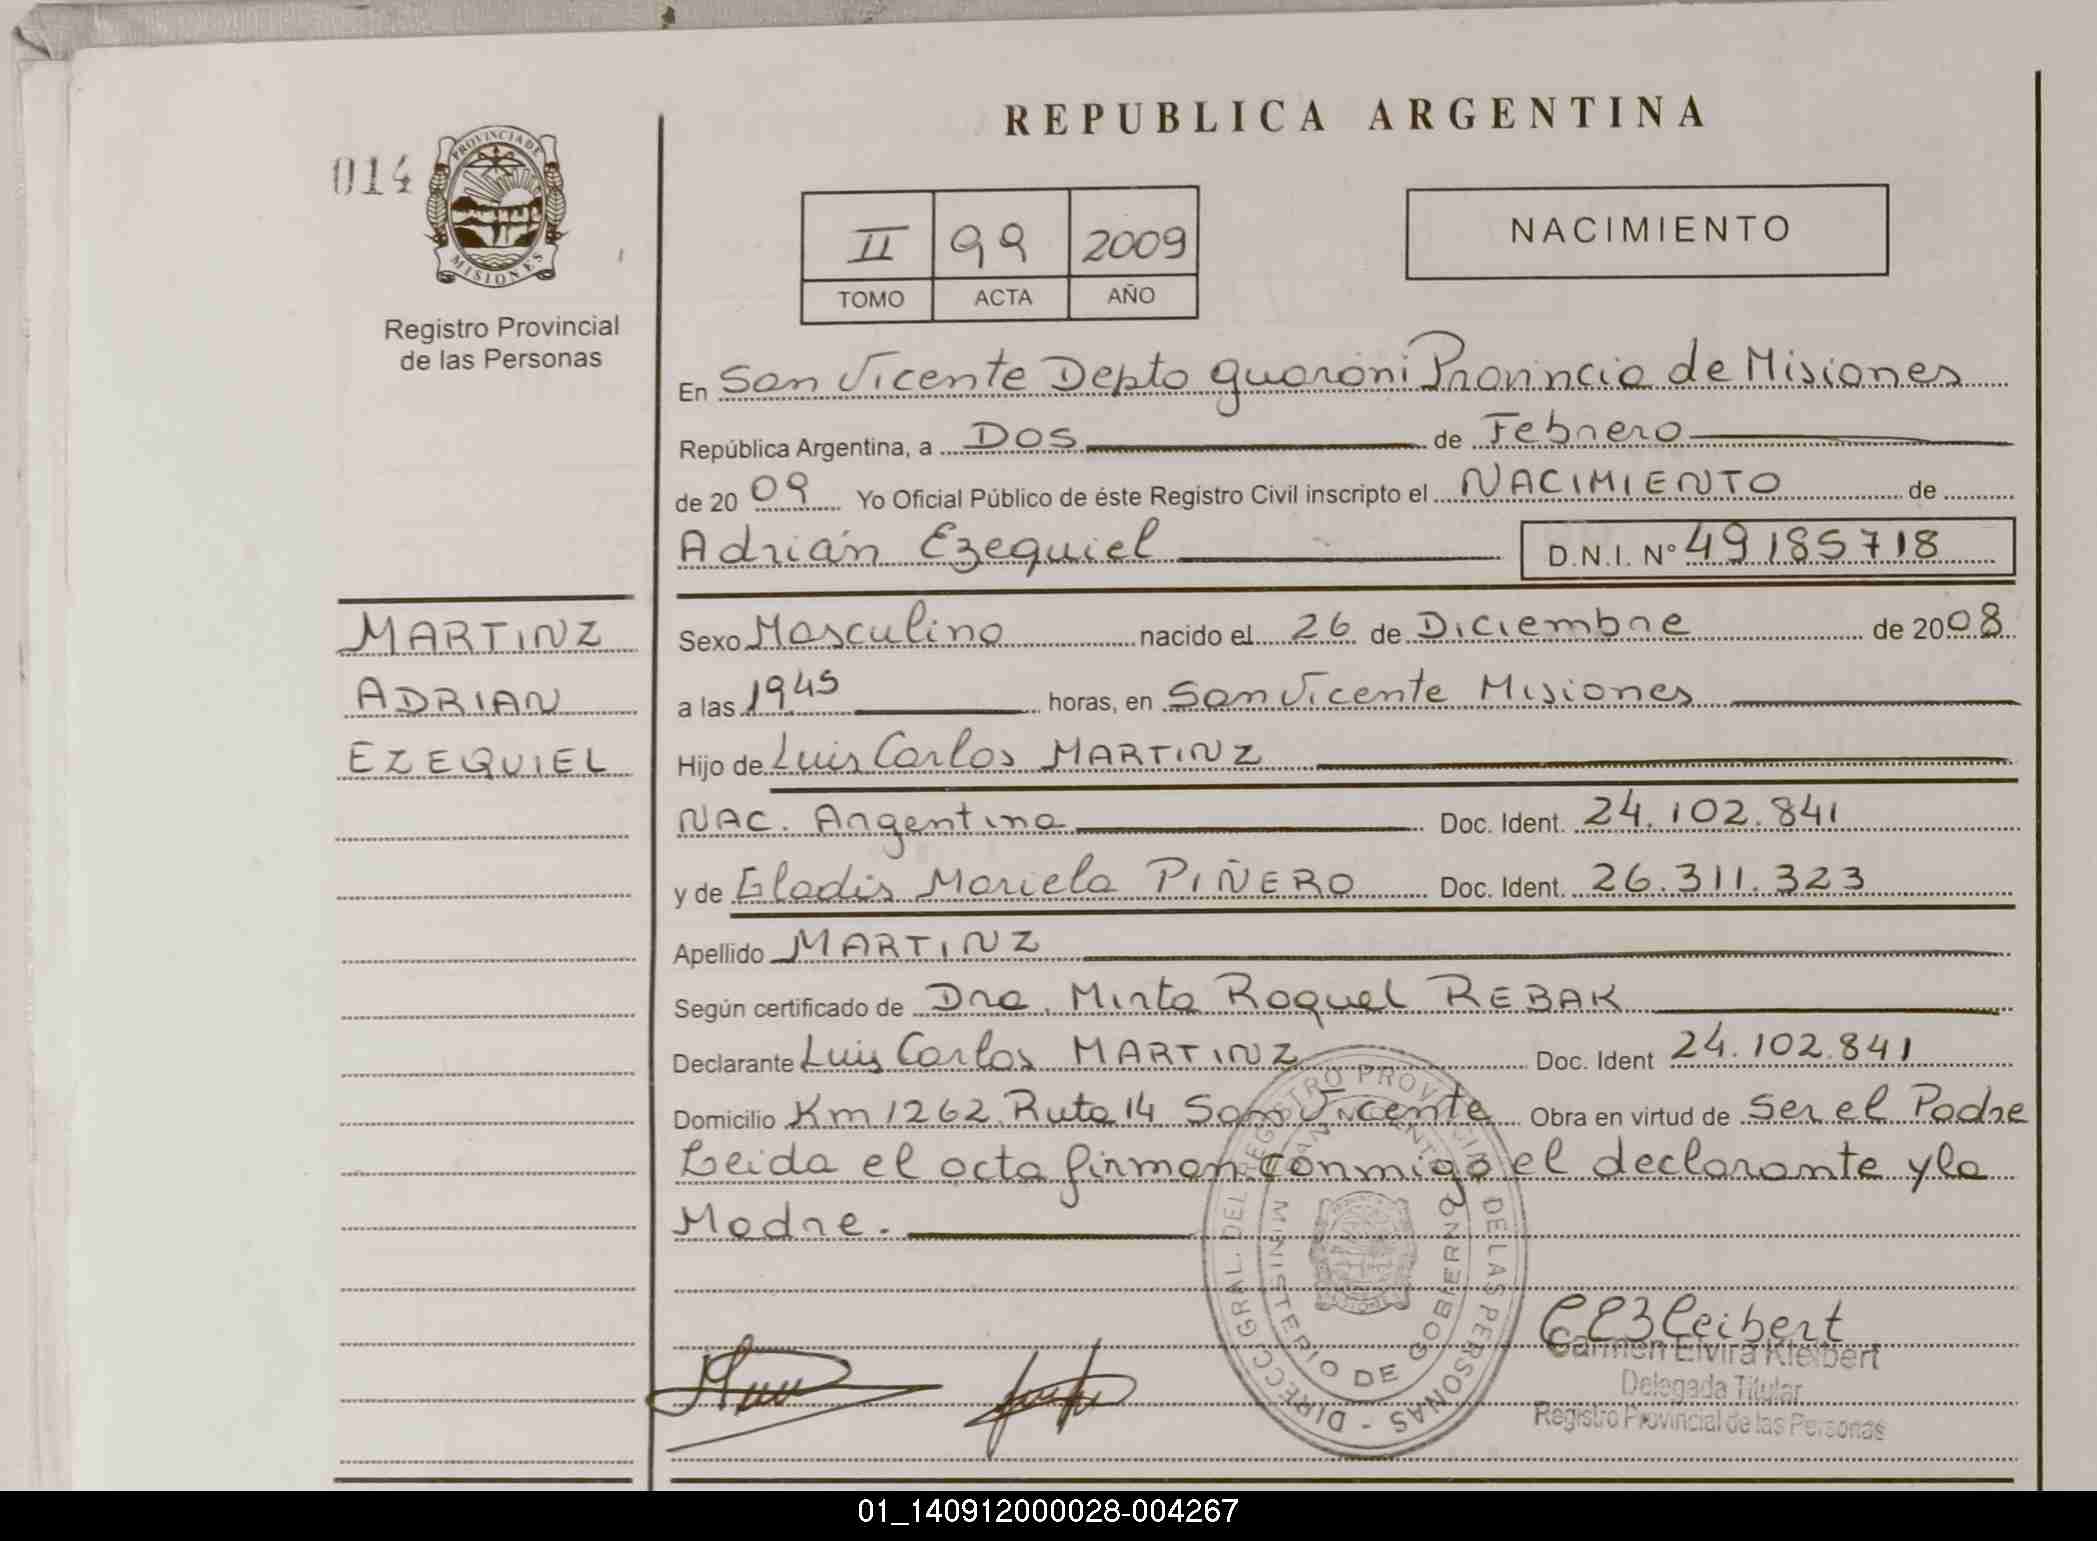 REPUBLICA ARGENTINA
014
PROVINCIA DE
MISIONES
Registro Provincial
de las Personas
II 99 2009
TOMO ACTA AÑO
NACIMIENTO
En San Vicente Depto guaraní Provincia de Misiones
República Argentina, a Dos de Febrero
de 20 09 Yo Oficial Público de éste Registro Civil inscripto el NACIMIENTO de
Adrián Ezequiel D.N.I. Nº 49185718
MARTINZ
ADRIAN
EZEQUIEL
Sexo Masculino nacido el 26 de Diciembre de 2008
a las 1945 horas, en San Vicente Misiones
Hijo de Luis Carlos MARTINZ
NAC. Argentina Doc. Ident. 24.102.841
y de Gladis Mariela PIÑERO Doc. Ident. 26.311.323
Apellido MARTINZ
Según certificado de Dra. Mirta Raquel REBAK
Declarante Luis Carlos MARTINZ Doc. Ident 24.102.841
Domicilio Km 1262 Ruta 14 San Vicente Obra en virtud de Ser el Padre
Leida el acta firman conmigo el declarante y la
Madre.
DIRECC GRAL. DEL REGISTRO PROVINCIAL DE LAS PERSONAS -
MINISTERIO DE GOBIERNO
SAN VICENTE
Carmen Elvira Kleibert
Delegada Titular
Registro Provincial de las Personas
01_140912000028-004267